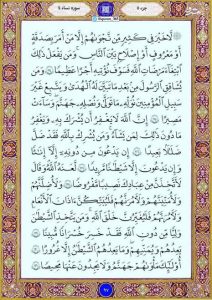 جزء ۵
سوره نساء ۴
لَّا خَيْرَ فِي كَثِيرٍ مِّن نَّجْوَىٰهُمْ إِلَّا مَنْ أَمَرَ بِصَدَقَةٍ
أَوْ مَعْرُوفٍ أَوْ إِصْلَٰحٍ بَيْنَ النَّاسِ وَمَن يَفْعَلْ ذَٰلِكَ
ابْتِغَاءَ مَرْضَاتِ اللَّهِ فَسَوْفَ نُؤْتِيهِ أَجْرًا عَظِيمًا ۝ وَمَن
يُشَاقِقِ الرَّسُولَ مِن بَعْدِ مَا تَبَيَّنَ لَهُ الْهُدَىٰ وَيَتَّبِعْ غَيْرَ
سَبِيلِ الْمُؤْمِنِينَ نُوَلِّهِ مَا تَوَلَّىٰ وَنُصْلِهِ جَهَنَّمَ وَسَاءَتْ
مَصِيرًا ۝ إِنَّ اللَّهَ لَا يَغْفِرُ أَن يُشْرَكَ بِهِ وَيَغْفِرُ
مَا دُونَ ذَٰلِكَ لِمَن يَشَاءُ وَمَن يُشْرِكْ بِاللَّهِ فَقَدْ ضَلَّ
ضَلَٰلًا بَعِيدًا ۝ إِن يَدْعُونَ مِن دُونِهِ إِلَّا إِنَٰثًا
وَإِن يَدْعُونَ إِلَّا شَيْطَٰنًا مَّرِيدًا ۝ لَّعَنَهُ اللَّهُ وَقَالَ
لَأَتَّخِذَنَّ مِنْ عِبَادِكَ نَصِيبًا مَّفْرُوضًا ۝ وَلَأُضِلَّنَّهُمْ
وَلَأُمَنِّيَنَّهُمْ وَلَءَامُرَنَّهُمْ فَلَيُبَتِّكُنَّ ءَاذَانَ الْأَنْعَٰمِ
وَلَءَامُرَنَّهُمْ فَلَيُغَيِّرُنَّ خَلْقَ اللَّهِ وَمَن يَتَّخِذِ الشَّيْطَٰنَ
وَلِيًّا مِّن دُونِ اللَّهِ فَقَدْ خَسِرَ خُسْرَانًا مُّبِينًا ۝
يَعِدُهُمْ وَيُمَنِّيهِمْ وَمَا يَعِدُهُمُ الشَّيْطَٰنُ إِلَّا غُرُورًا ۝
أُولَٰئِكَ مَأْوَىٰهُمْ جَهَنَّمُ وَلَا يَجِدُونَ عَنْهَا مَحِيصًا ۝
۹۷